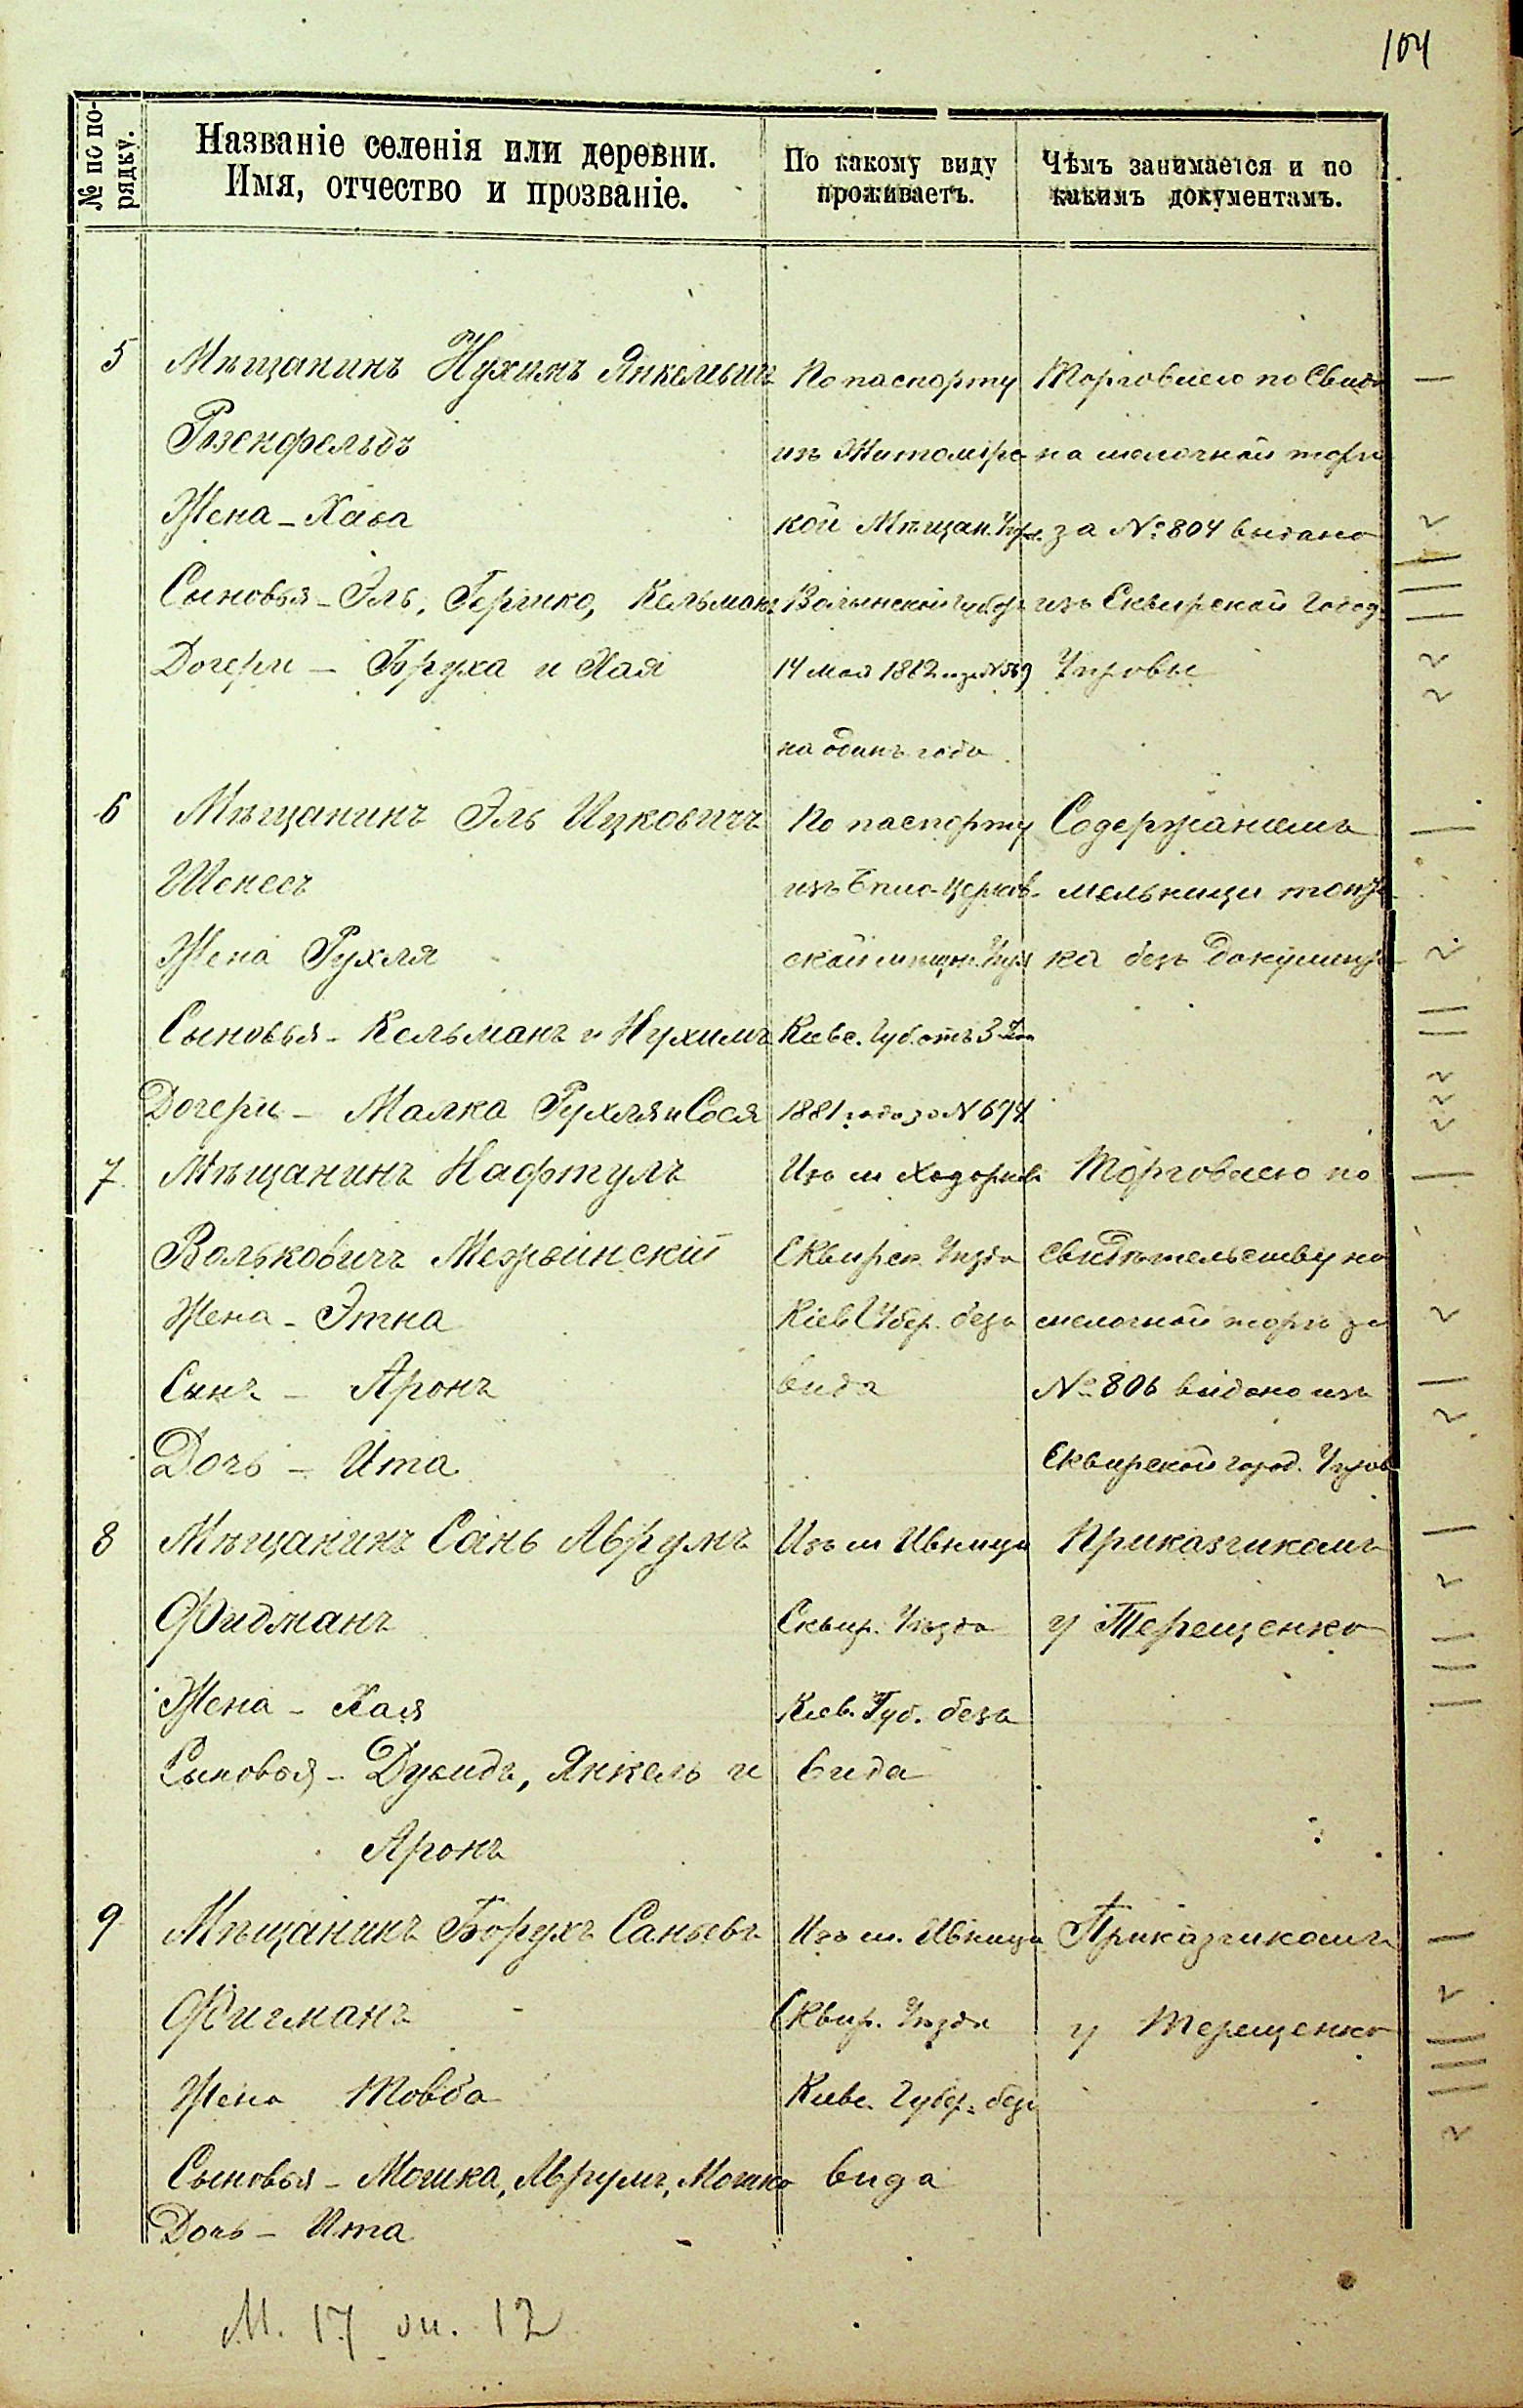 104
№ по порядку.
Названіе селенія или деревни.
Имя, отчество и прозваніе.
По какому виду
проживаетъ.
Чѣмъ занимается и по
какимъ документамъ.
5 Мѣщанинъ Нухимъ Янкелевичъ По паспорту Торговлею по Свид
Розенфельдъ изъ Житомірс на мелочной торгъ
Жена - Хава кой Мѣщан. Упр. за № 804 выдано
Сыновья - Эль, Гершко, Кельманъ Волынской губер изъ Сквирской Город.
Дочери - Бруха и Хая 14 мая 1882 за № 569 Управы
на одинъ годъ
6 Мѣщанинъ Эль Ицковичъ По паспорту Содержаніемъ
Шенесъ изъ Бѣло-Церков- мельницы топч
Жена Рухля ской мѣщан. Упр ка безъ документ
Сыновья - Кельманъ и Нухимъ Кіевс. Губ. отъ 3
Дочери - Малка Рухля и Сося 1881 года за № 674
7 Мѣщанинъ Нафтулъ Изъ м Ходорков Торговлею по
Вольковичъ Межвинскій Сквирск. Уѣзда свидѣтельству на
Жена - Этна Кіев Губер. безъ мелочной торгъ за
Сынъ - Аронъ вида № 806 видано изъ
Дочь - Ита Сквирской город. Управ
8 Мѣщанинъ Сань Аврумъ Изъ м Ивница Приказчикомъ
Фидманъ Сквир. Уѣзда у Терещенко
Жена - Хая Кіев. Губ. безъ
Сыновья - Дувидъ, Янкель и вида
Аронъ
9 Мѣщанинъ Борухъ Саньевъ Изъ м. Ивница Приказчикомъ
Фигманъ Сквир. Уѣзда у Терещенко
Жена Товба Кіевс. Губер. безъ
Сыновья - Мошка, Аврумъ, Мошко вида
Дочь - Ита
М. 17 ж. 12